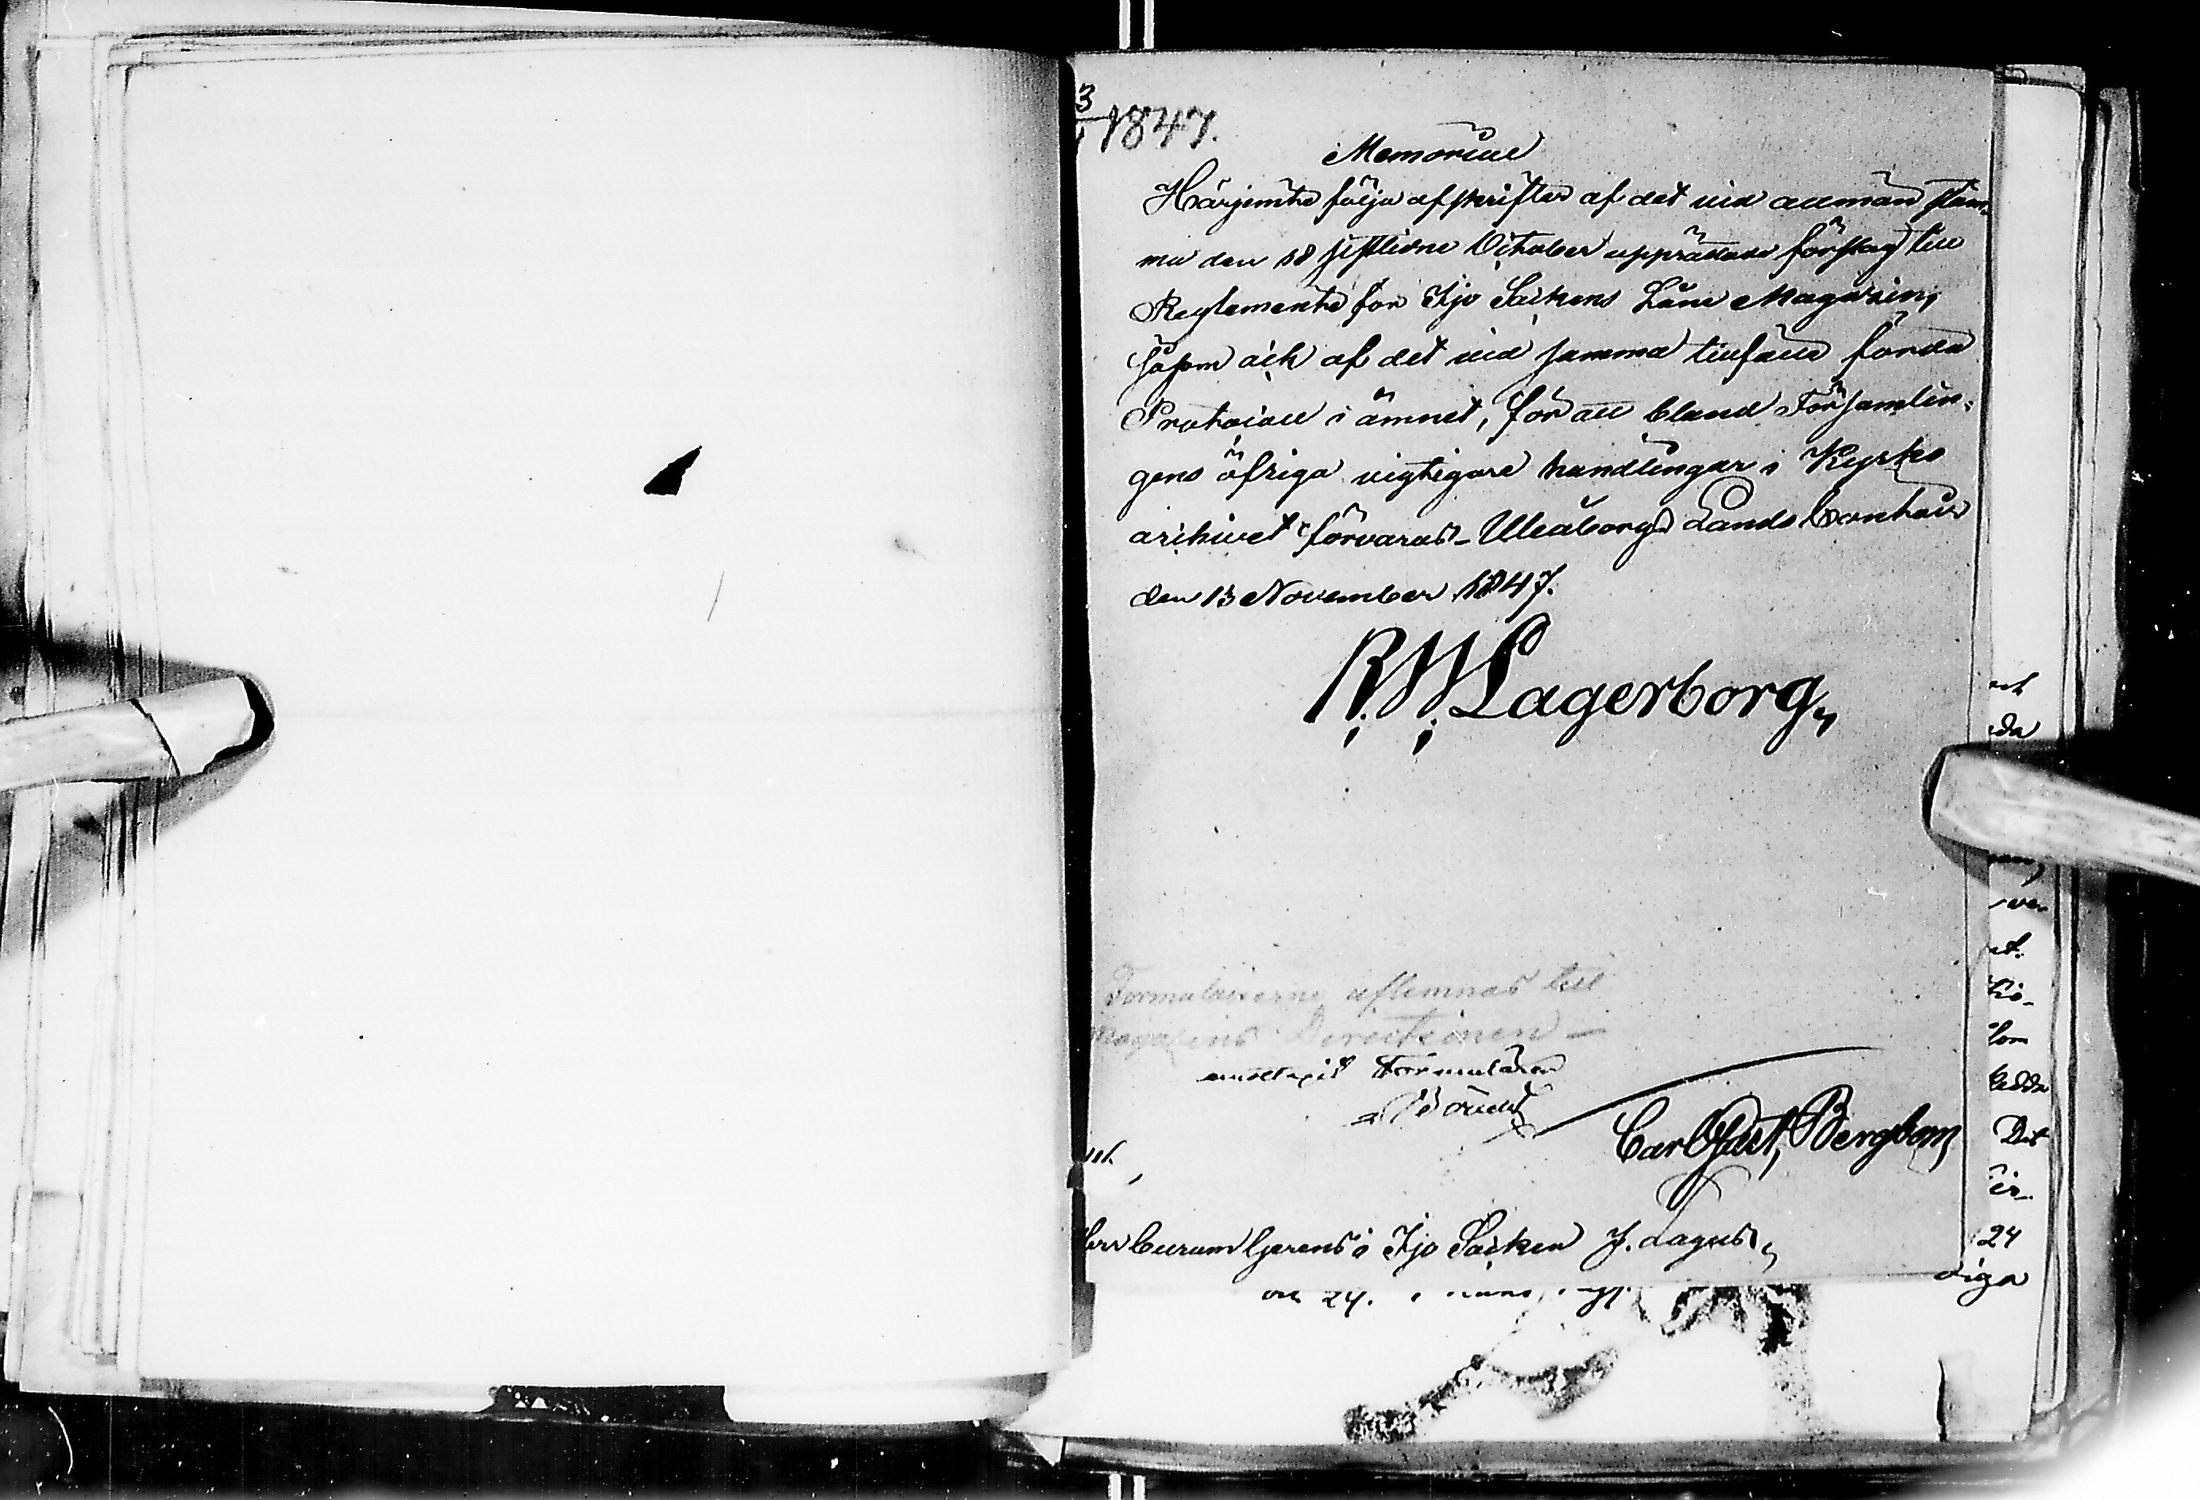 3
1847.
Memorial
Härjemte följa afskrifter af det vid allmän stäm-
ma den 18 sistlidne October upprättade förslag till
Reglemente för Ijo Sockens Låne Magazin,
såsom ock af det vid samma tillfälle förda
Protocoll i ämnet, för att bland Församlin-
gens öfriga vigtigare handlingar i Kyrko
archivet förvaras. Uleåborgs Lands Contoir
den 13 November 1847.
R. W. Lagerborg,
Formulairerne aflemnas till
Magasins Directionen —
emottagit Formulären
Carl Gust. Bergbom,
Curam Gerens i Ijo Socken J. Lagus,
och
dom
Det
24
diga